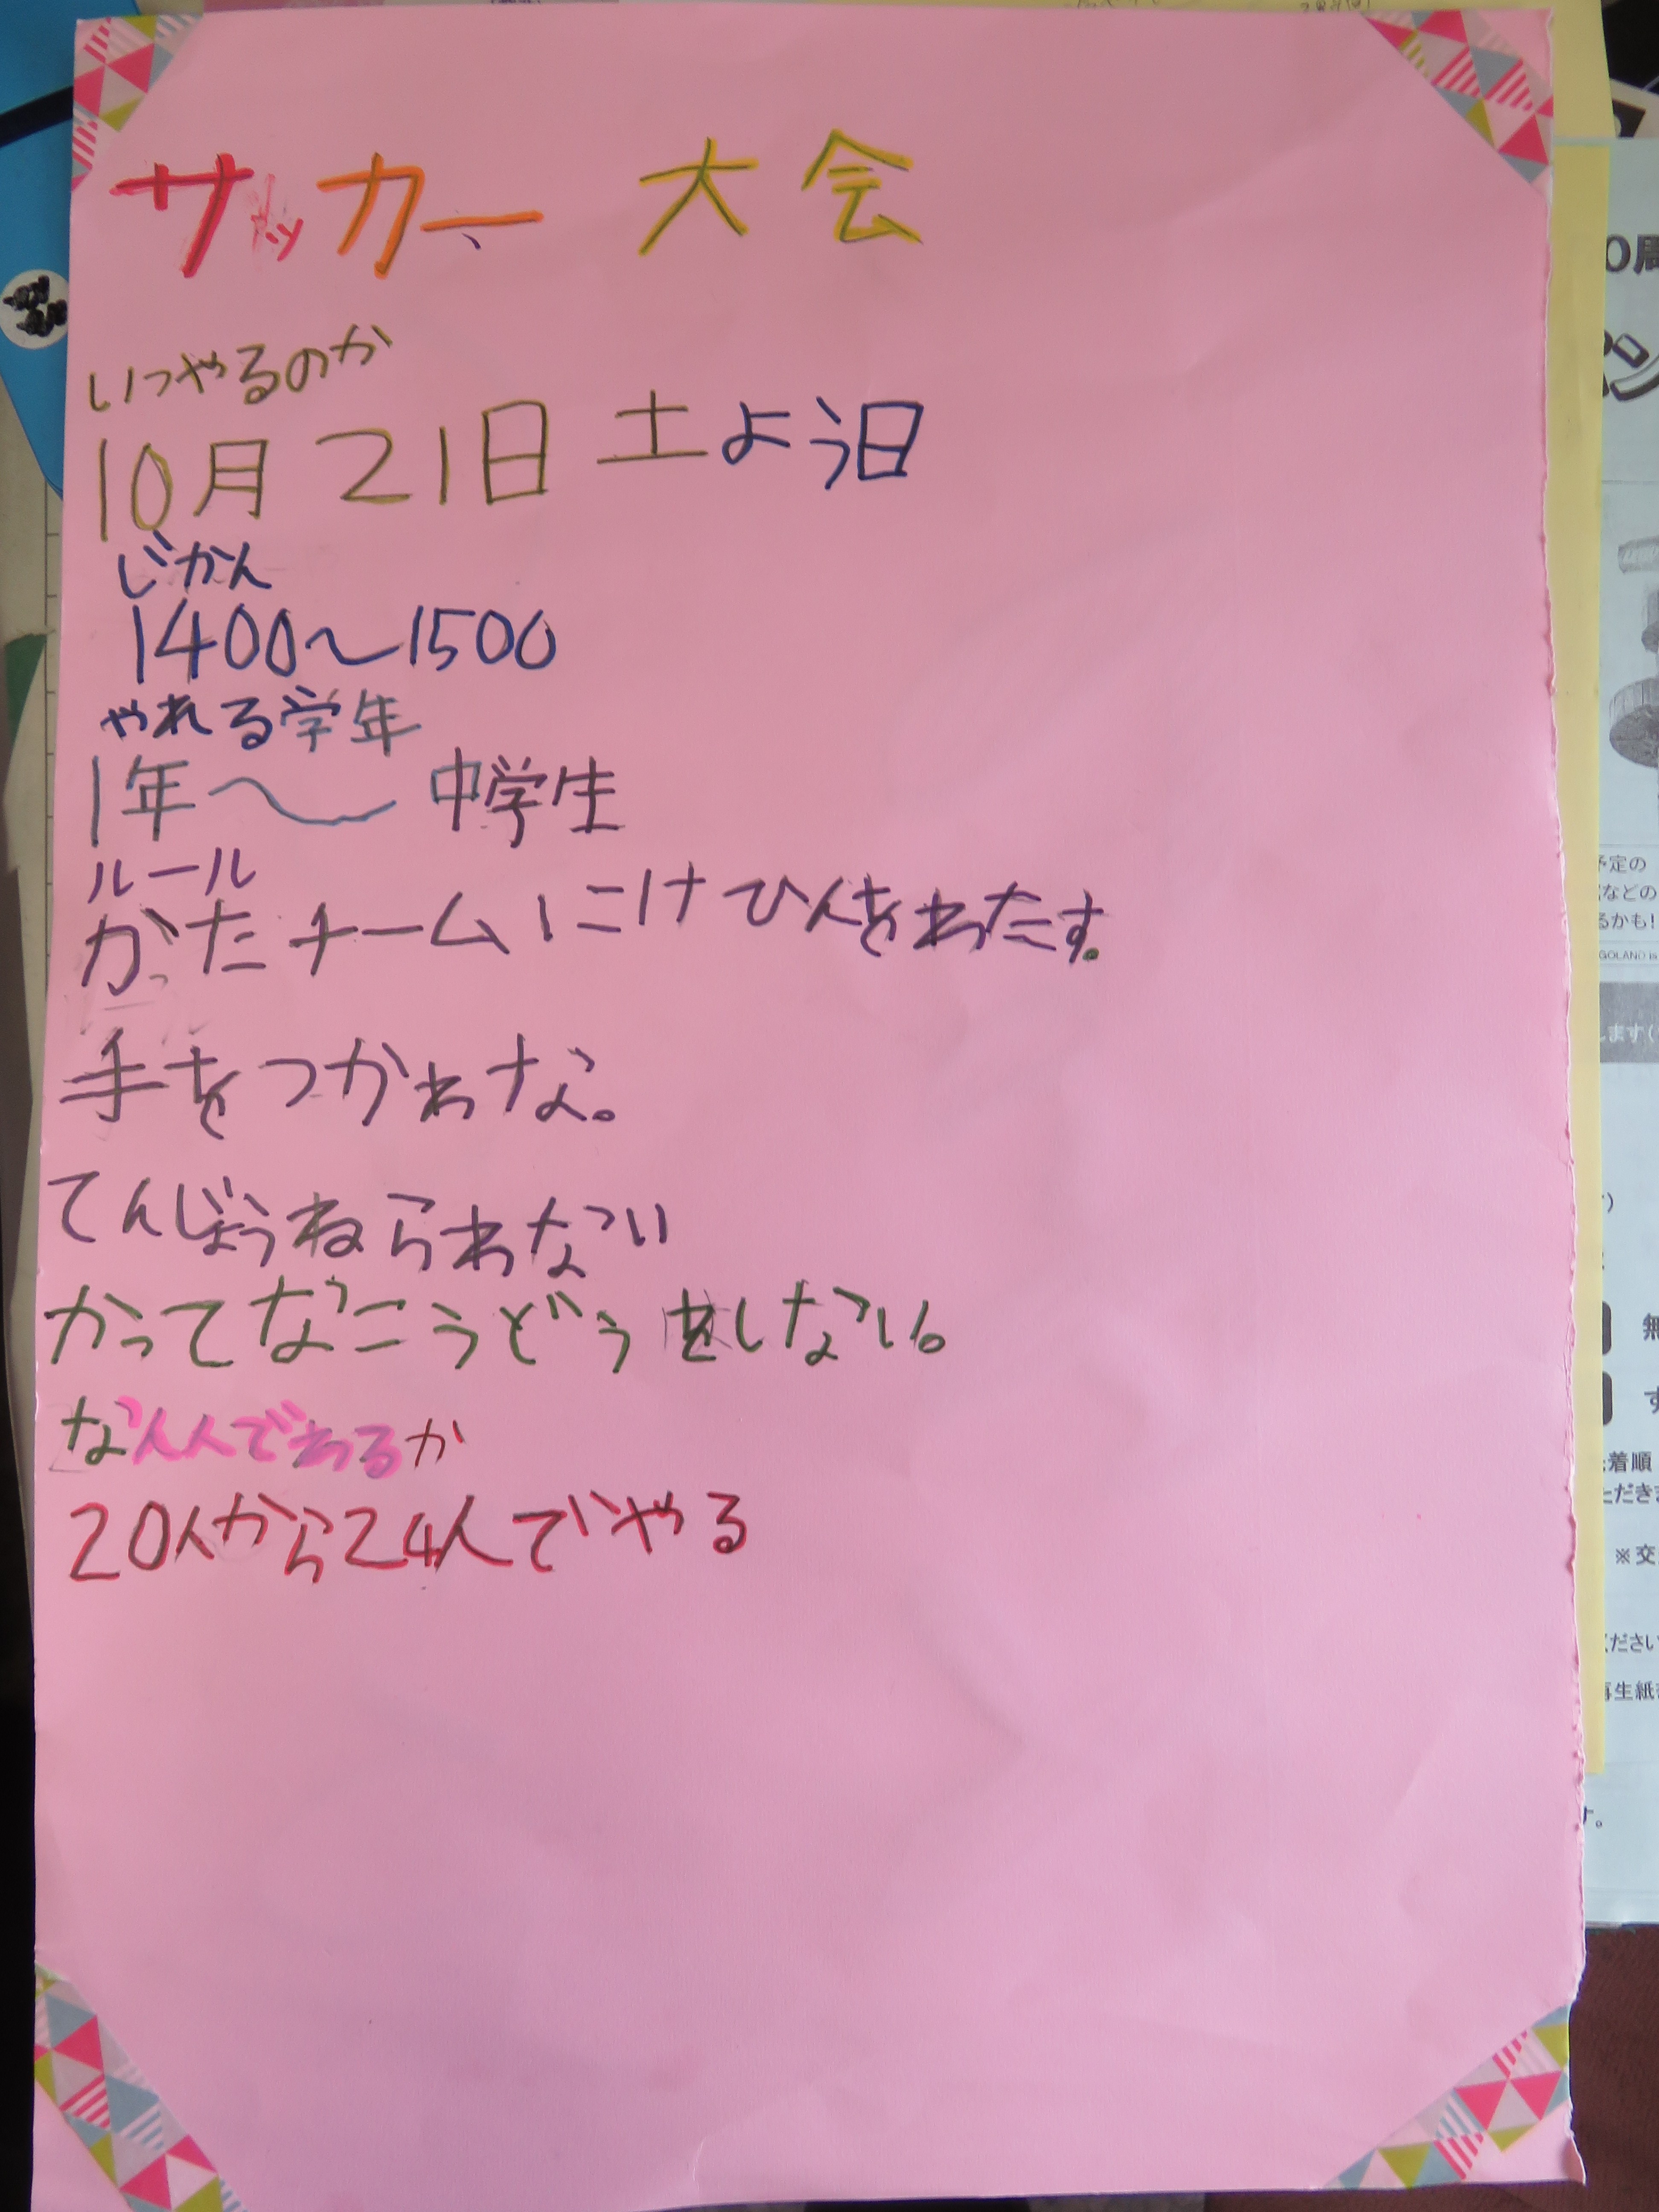 サッカー 大会
いつやるのか
10月 21日 土よう日
じかん
1400〜1500
やれる学年
1年〜中学生
ルール
かったチームにけひんをわたす。
手をつかわな。
てんじょうねらわない
かってなこうどうをしない。
なん人であるか
20人から24人でやる
予定の
などの
るかも!
します
着順
ただきま
※交
ください
再生紙
す。